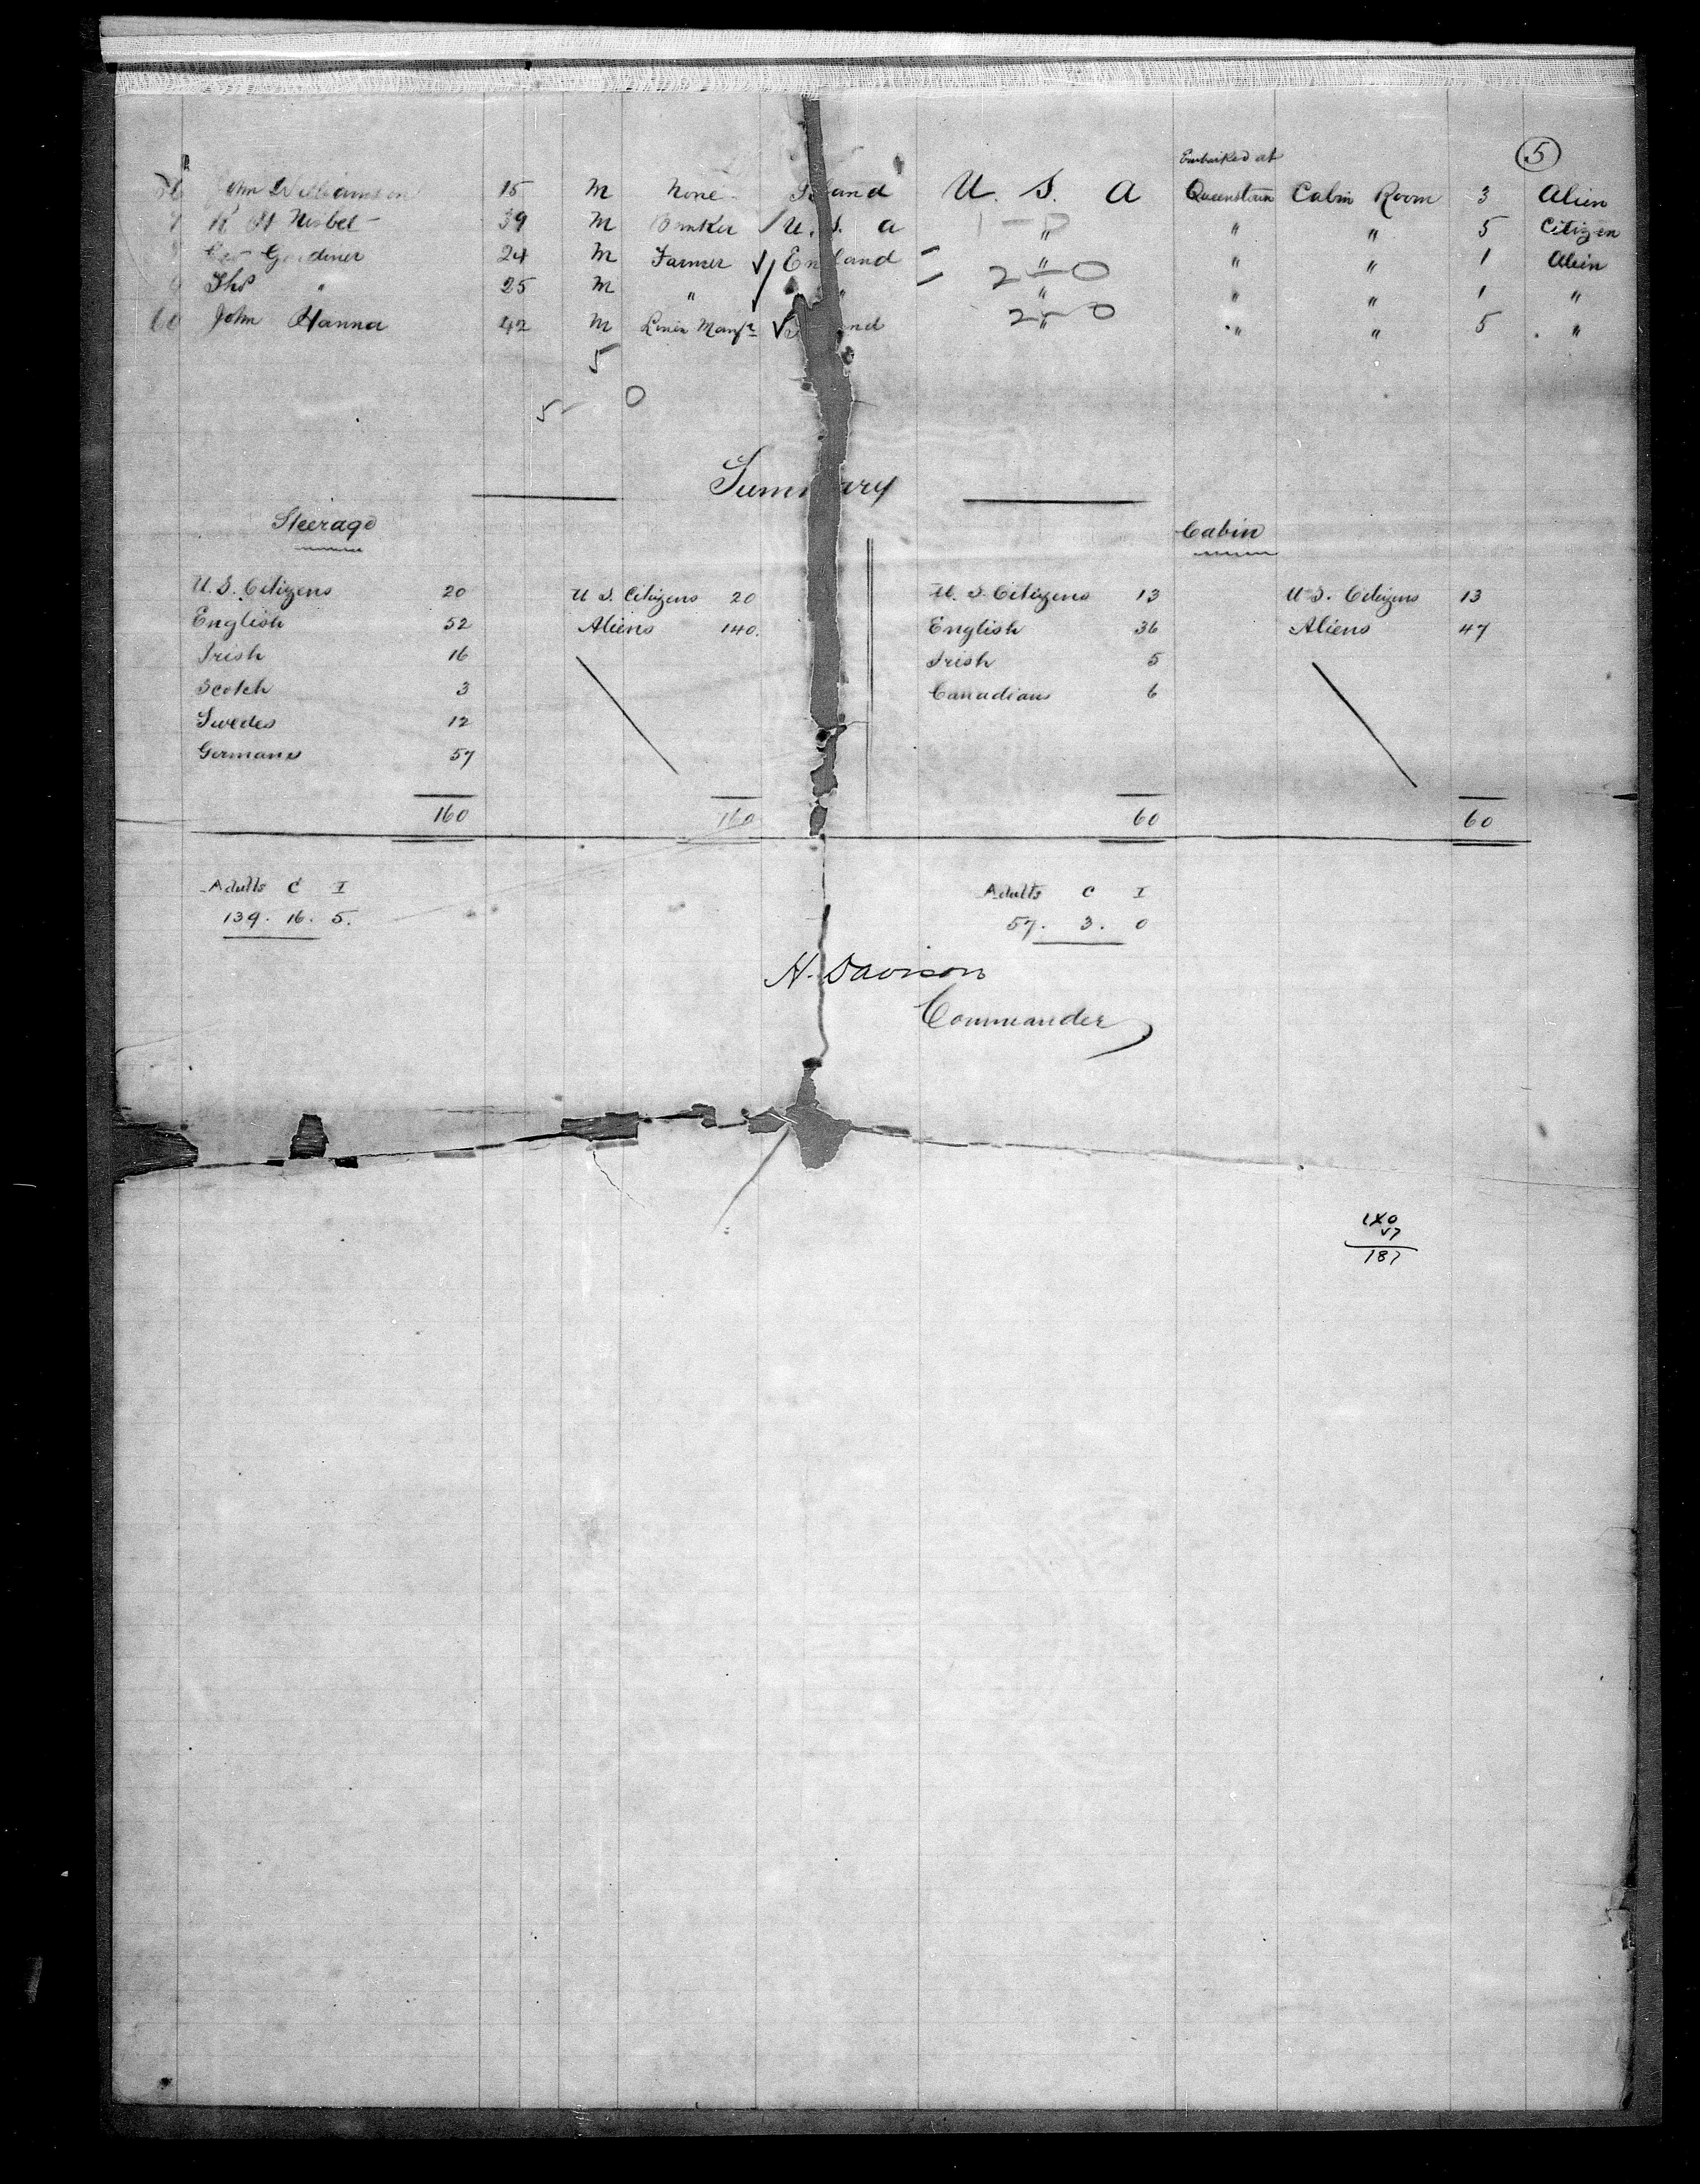 5
Embarked at
56 John Williamson 15 M None Ireland U. S. A Queenstown Cabin Room 3 Alien
7 R H Nisbet 39 M Banker U. S. A " " " 5 Citizen
Geo Gardiner 24 M Farmer England " " " 1 Alien
9 Thos " 25 M " " " " " 1 "
60 John Hanna 42 M Linen Manfr nd " " " 5 "
5
5 - 0
Summary
Steerage Cabin
U.S. Citizens 20 U S. Citizens 20 U. S. Citizens 13 U.S. Citizens 13
English 52 Aliens 140. English 36 Aliens 47
Irish 16 Irish 5
Scotch 3 Canadians 6
Swedes 12
Germans 57
160 160 60 60
Adults C I Adults C I
139. 16. 5. 57. 3. 0
H. Davison
Commander
140
47
187